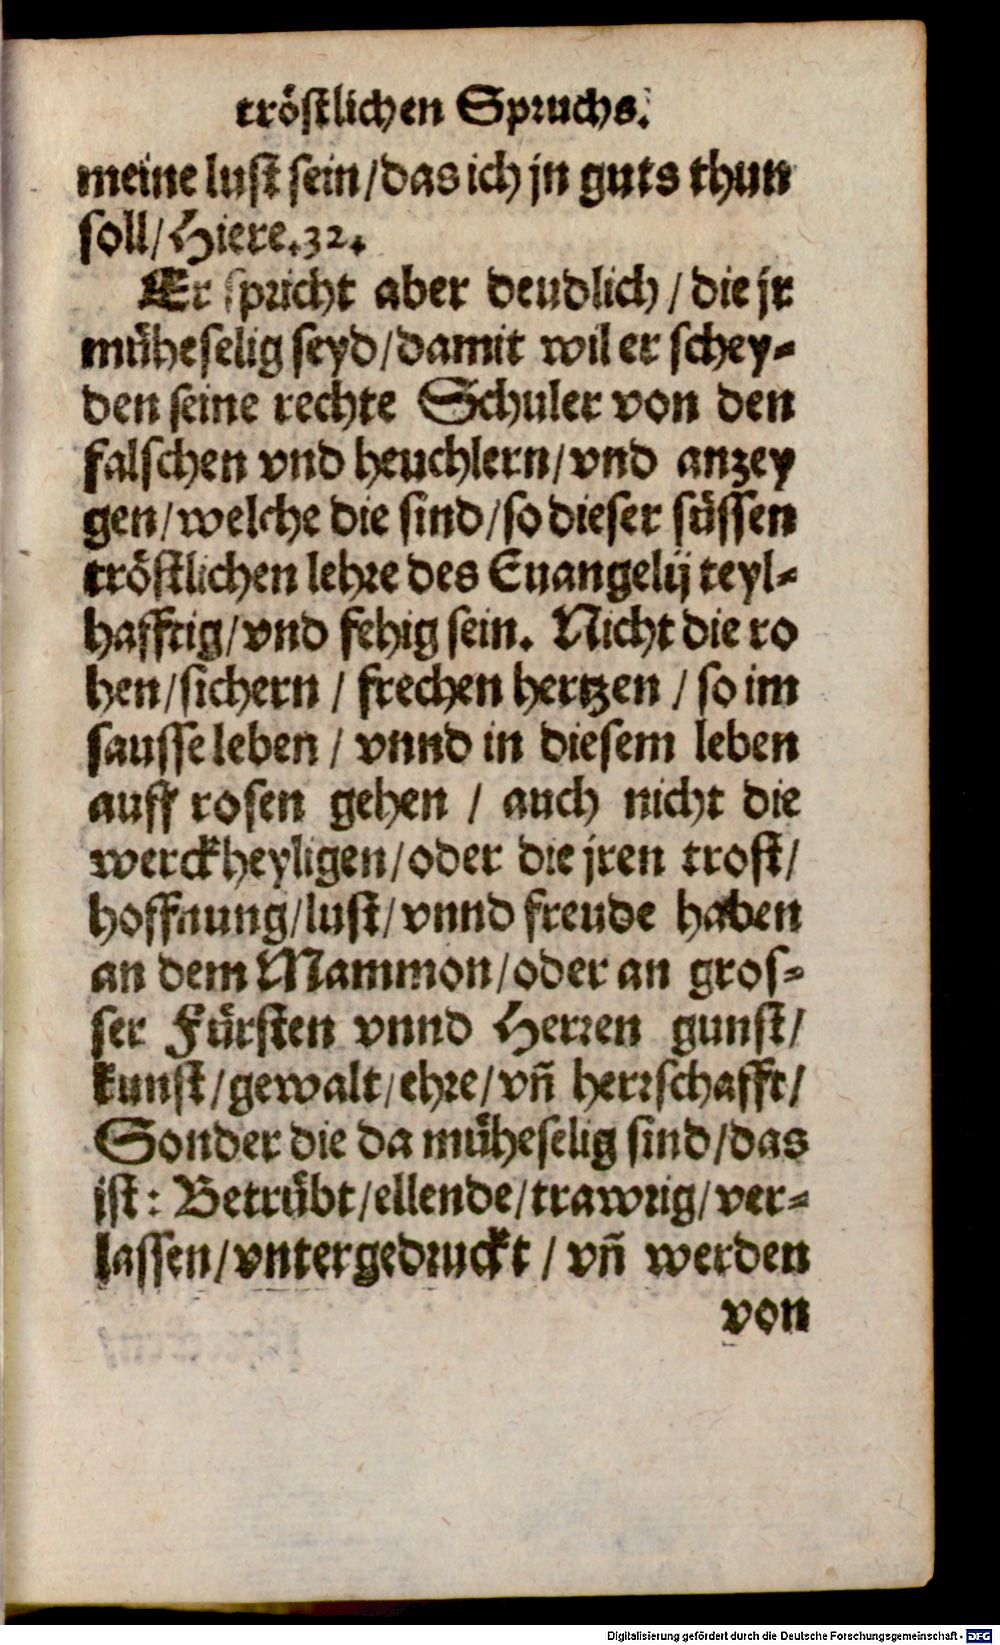 tröstlichen Spruchs.
meine lust sein/das ich jn guts thun
soll/Hiere.32.
Er spricht aber deudlich/die jr
müheselig seyd/damit wil er schey-
den seine rechte Schuler von den
falschen vnd heuchlern/vnd anzey
gen/welche die sind/so dieser süssen
tröstlichen lehre des Euangelij teyl-
hafftig/vnd fehig sein. Nicht die ro
hen/sichern/frechen hertzen/so im
sausse leben/vnnd in diesem leben
auff rosen gehen/auch nicht die
werckheyligen/oder die jren trost/
hoffnung/lust/vnnd freude haben
an dem Mammon/oder an gros-
ser Fürsten vnnd Herren gunst/
kunst/gewalt/ehre/vñ herrschafft/
Sonder die da müheselig sind/das
ist: Betrübt/ellende/trawrig/ver-
lassen/vntergedruckt/vñ werden
von
Digitalisierung gefördert durch die Deutsche Forschungsgemeinschaft - DFG